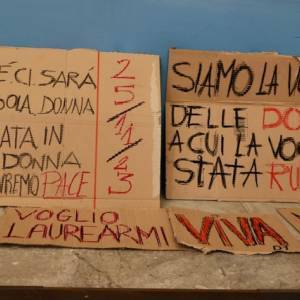 É CI SARÁ
SOLA DONNA
ATA IN
DONNA
REMO PACE
25/11/23
SIAMO LA
DELLE DO
A CUI LA VO
STATA RU
VOGLIO
LAUREARMI
VIVA!